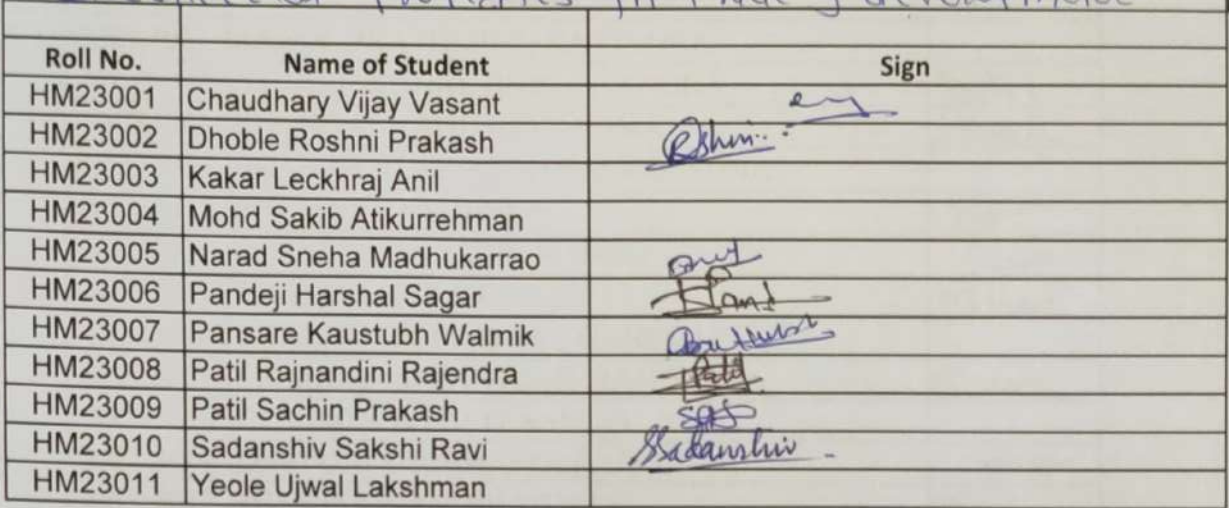 in
Roll No. Name of Student Sign
HM23001 Chaudhary Vijay Vasant
HM23002 Dhoble Roshni Prakash
HM23003 Kakar Leckhraj Anil
HM23004 Mohd Sakib Atikurrehman
HM23005 Narad Sneha Madhukarrao
HM23006 Pandeji Harshal Sagar
HM23007 Pansare Kaustubh Walmik
HM23008 Patil Rajnandini Rajendra Patil
HM23009 Patil Sachin Prakash
HM23010 Sadanshiv Sakshi Ravi SSadanshiv
HM23011 Yeole Ujwal Lakshman